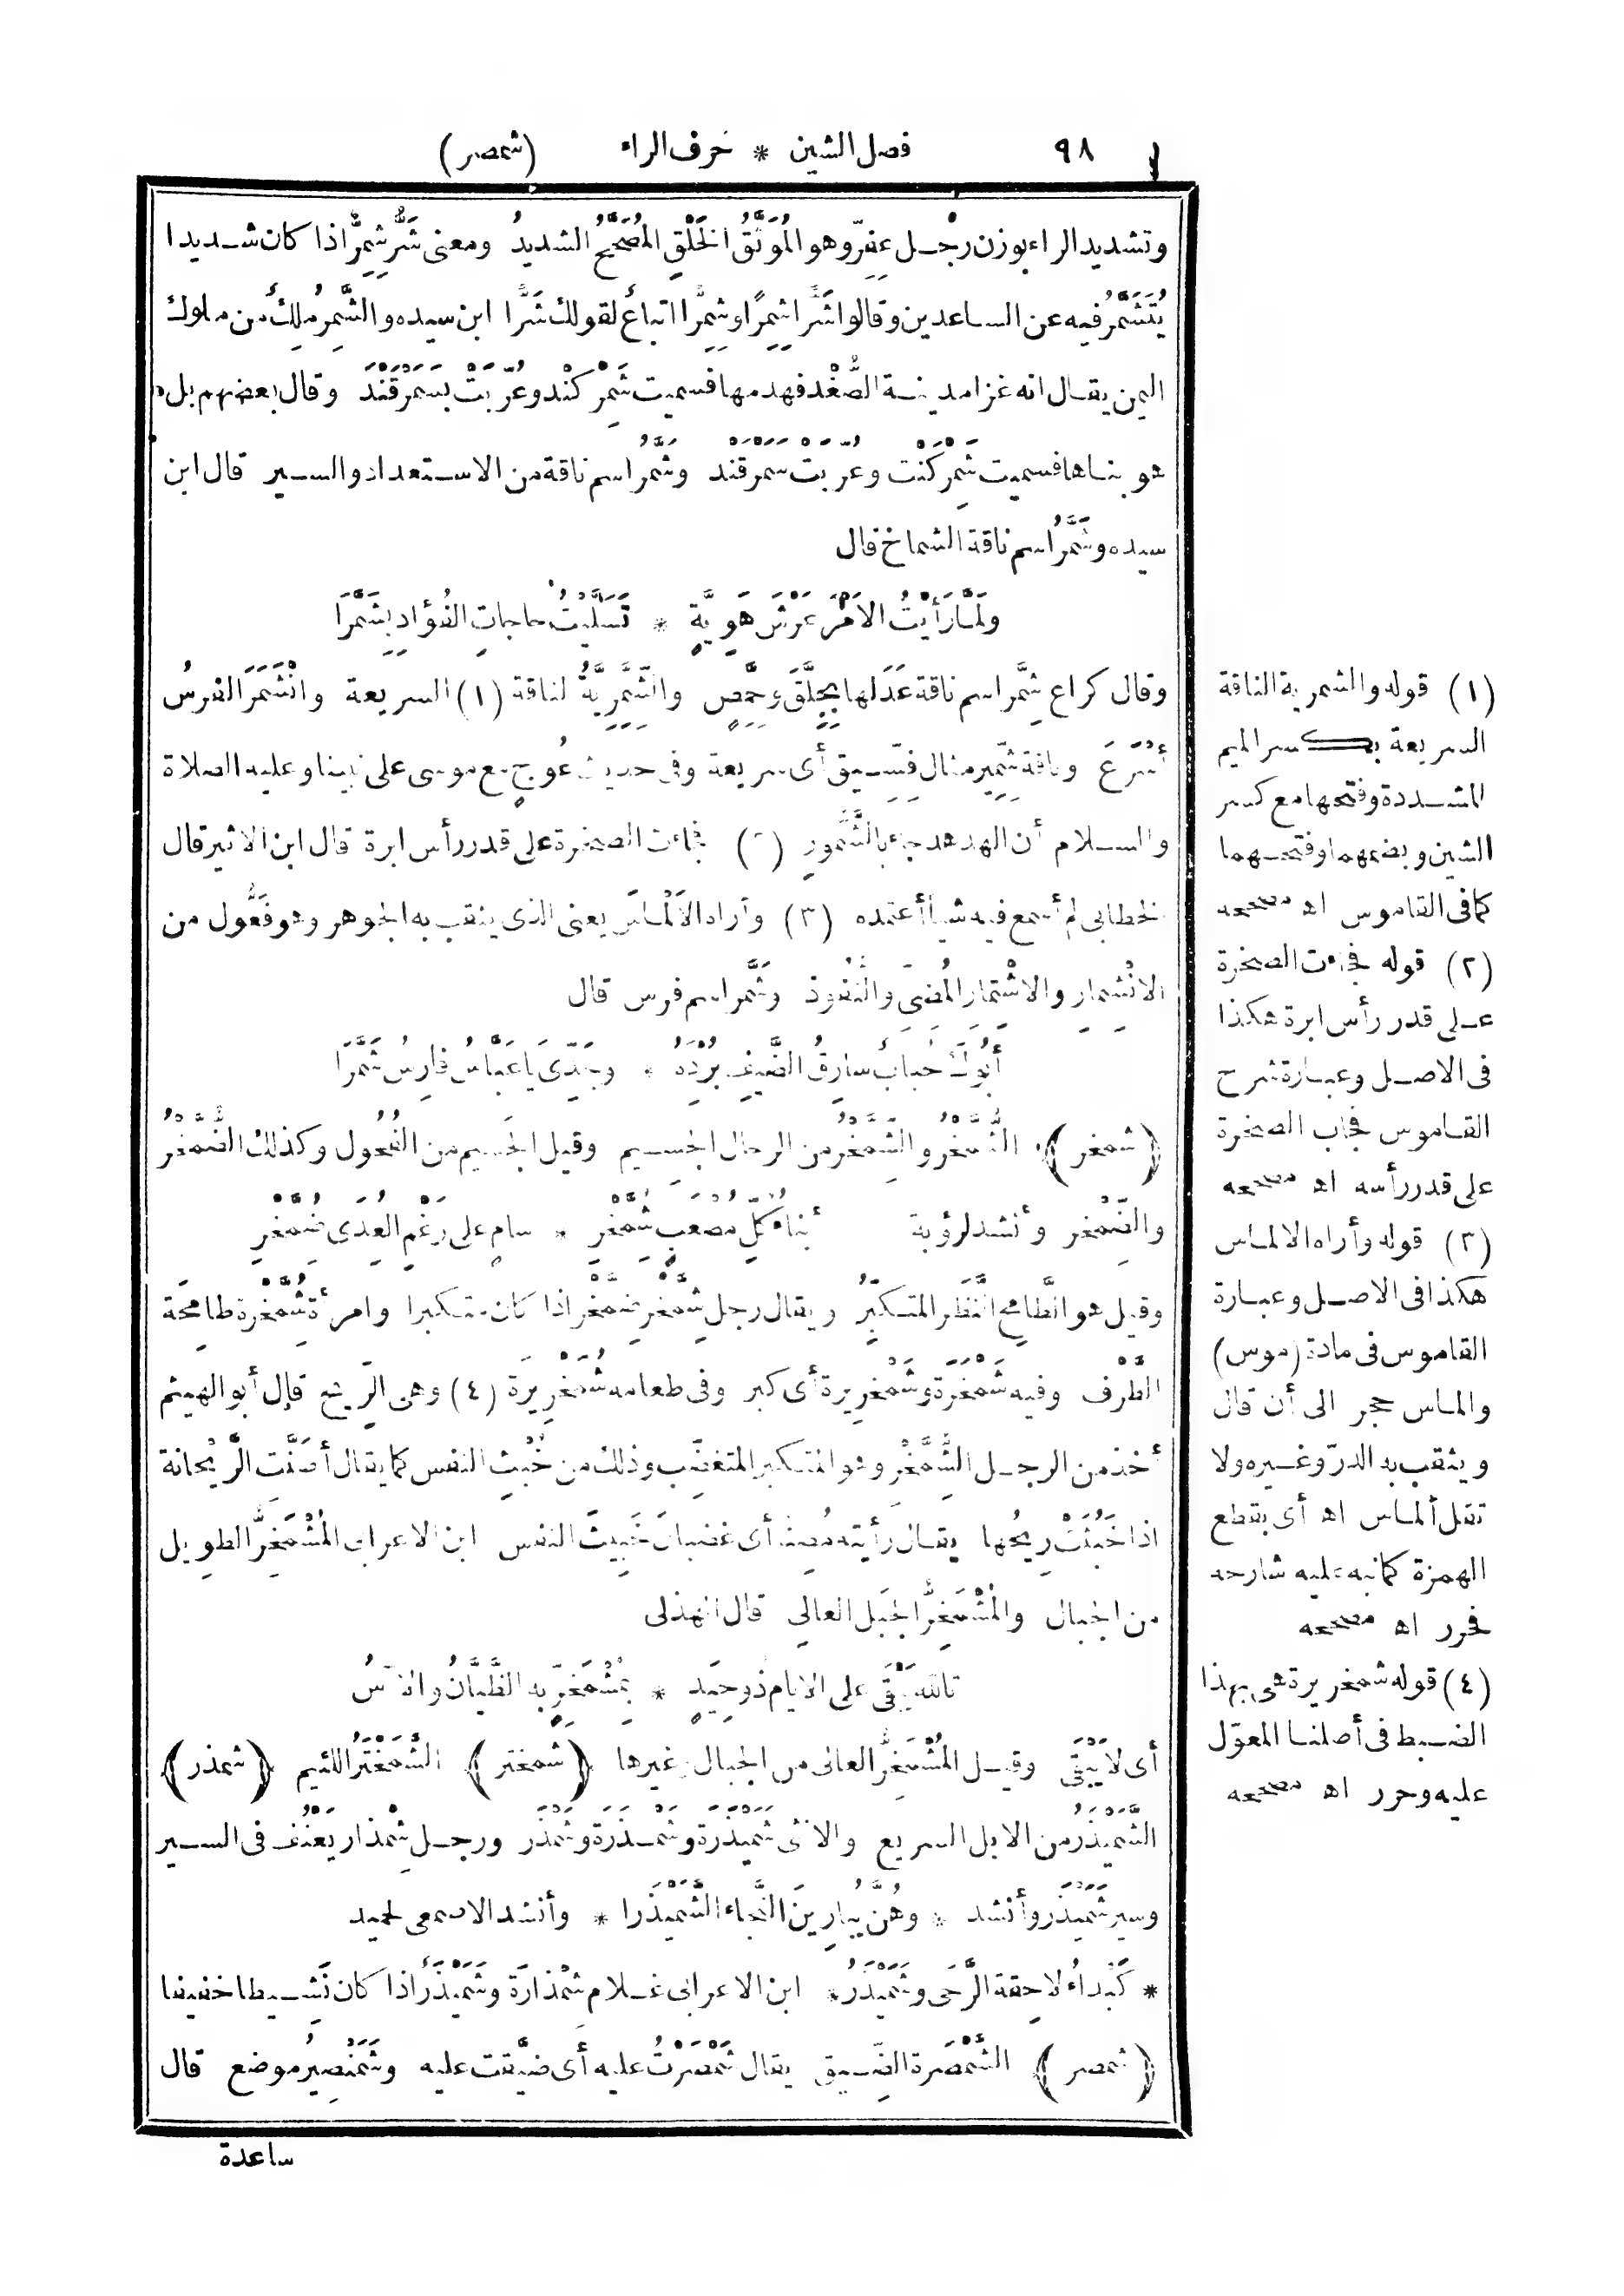 ٩٨ فصل الشين * حرف الراء (شمصر)
وتشديد الراء بوزن رجُل عِفِرّ وهو المُوَثَّقُ الخَلْقِ المُصَحَّحُ الشديدُ ومعنى شَرٌّ شِمِرٌّ اذا كان شديدا
يُتَشَمَّرُ فيه عن الساعدين وقالوا شَرًّا شِمِرًّا وشِمِرًّا اتباعٌ لقولك شَرًّا ابن سيده والشَّمِرُ مَلِكٌ من ملوك
اليمن يقال انه غزا مدينة الصُّغْد فهدمها فسميت شَمِرْ كَنْد وعُرِّبَتْ بسَمَرْقَنْدَ وقال بعضهم بل
هو بناها فسميت شَمِرْكَنْت وعُرِّبَتْ سمرقند وشَمَّرُ اسم ناقة من الاستعداد والسير قال ابن
سيده وشَمَّرُ اسم ناقة الشماخ قال
ولَمَّا رَأَيْتُ الاَمْرَ عَرْشَ هَوِيَّةٍ * تَسَلَّيْتُ حاجاتِ الفُؤادِ بِشَمَّرَا
وقال كراع شِمَّر اسم ناقة عَدَلَها بِجِلَّقَ وحِمَّصٍ والشِّمَّرِيَّةُ الناقة (١) السريعة وانْشَمَرَ الفرسُ
أَسْرَعَ وناقة شِمِّير مثال فِسِّيق أى سريعة وفى حديث عُوجٍ مع موسى على نبينا وعليه الصلاة
والسلام أن الهدهد جاء بالشَّمُّورِ (٢) فجاءت الصخرة على قدر رأس ابرة قال ابن الاثير قال
الخطابى لم أسمع فيه شيأ أعتمده (٣) وأراه الاَلْماسَ يعنى الذى يثقب به الجوهر وهو فَعُّول من
الانْشِمارِ والاشْتِمارِ المُضِىِّ والنُّفوذ وشَمَّر اسم فرس قال
أَبُوكَ حُبابٌ سارِقُ الضَّيْفِ بُرْدَهُ * وجَدِّىَ يا عَبَّاسُ فارِسُ شَمَّرَا
﴿شمخر﴾ الشُّمَّخْرُ والشِّمَّخْرُ من الرجال الجسيم وقيل الجسيم من الفُحُول وكذلك الضُّمَّخْرُ
والضِّمَّخْر وأنشد لرؤبة أبناءُ كُلِّ مُصْعَبٍ شُمَّخْرِ * سامٍ على رَغْمِ العِدَى ضُمَّخْرِ
وقيل هو الطَّامِحُ النَّظَرِ المتكبِّرُ ويقال رجل شُمَّخْرٌ ضُمَّخْرٌ اذا كان متكبرا وامرأة شُمَّخْرَة طامِحَة
الطَّرْف وفيه شَمْخَرَة وشَمْخَرِيرة أى كبر وفى طعامه شُمَخْرِيرَة (٤) وهى الرِّيح قال أبو الهيثم
أُخذ من الرجل الشُّمَّخْر وهو المتكبر المتغضّب وذلك من خُبْثِ النفس كما يقال أَصَنَّت الرَّيْحانة
اذا خَبُثَتْ رِيحُها يقال رأيته مُصِنًّا أى غضبانَ خَبِيثَ النفس ابن الاعرابى المُشْمَخِرُّ الطويل
من الجبال والمُشْمَخِرُّ الجَبَل العالى قال الهذلى
تاللهِ يَبْقَى على الايام ذو حِيَدٍ * بمُشْمَخِرٍّ به الظَّيَّانُ والآسُ
أى لا يَبْقَى وقيل المُشْمَخِرُّ العالى من الجبال وغيرها ﴿شمختر﴾ الشَّمَخْتَرُ اللئيم ﴿شمذر﴾
الشَّمَيْذَرُ من الابل السريع والانثى شَمَيْذَرَة وشَمْذَرَة وشَمْذَر ورجل شِمْذار يَعْنُف فى السير
وسير شَمَيْذَر وأنشد * وهُنَّ يُبارِينَ النَّجاءَ الشَّمَيْذَرا * وأنشد الاصمعى لحميد
* كَبْداءُ لاحِقة الرَّحَى وشَمَيْذَرُ * ابن الاعرابى غلام شِمْذارَة وشَمَيْذَرٌ اذا كان نَشِيطا خفيفا
﴿شمصر﴾ الشَّمْصَرَة الضِّيق يقال شَمْصَرْتُ عليه أى ضيَّقت عليه وشَمَنْصِيرُ موضع قال
ساعدة
(١) قوله والشمرية الناقة
السريعة بكسر الميم
المشددة وفتحها مع كسر
الشين وبضمهما وفتحهما
كما فى القاموس اه مصححه
(٢) قوله فجاءت الصخرة
على قدر رأس ابرة هكذا
فى الاصل وعبارة شرح
القاموس فجاب الصخرة
على قدر رأسه اه مصححه
(٣) قوله وأراه الالماس
هكذا فى الاصل وعبارة
القاموس فى مادة (موس)
والماس حجر الى أن قال
ويثقب به الدرّ وغيره ولا
تقل ألماس اه أى بقطع
الهمزة كما نبه عليه شارحه
فحرر اه مصححه
(٤) قوله شمخريرة هى بهذا
الضبط فى أصلنا المعوّل
عليه وحرر اه مصححه